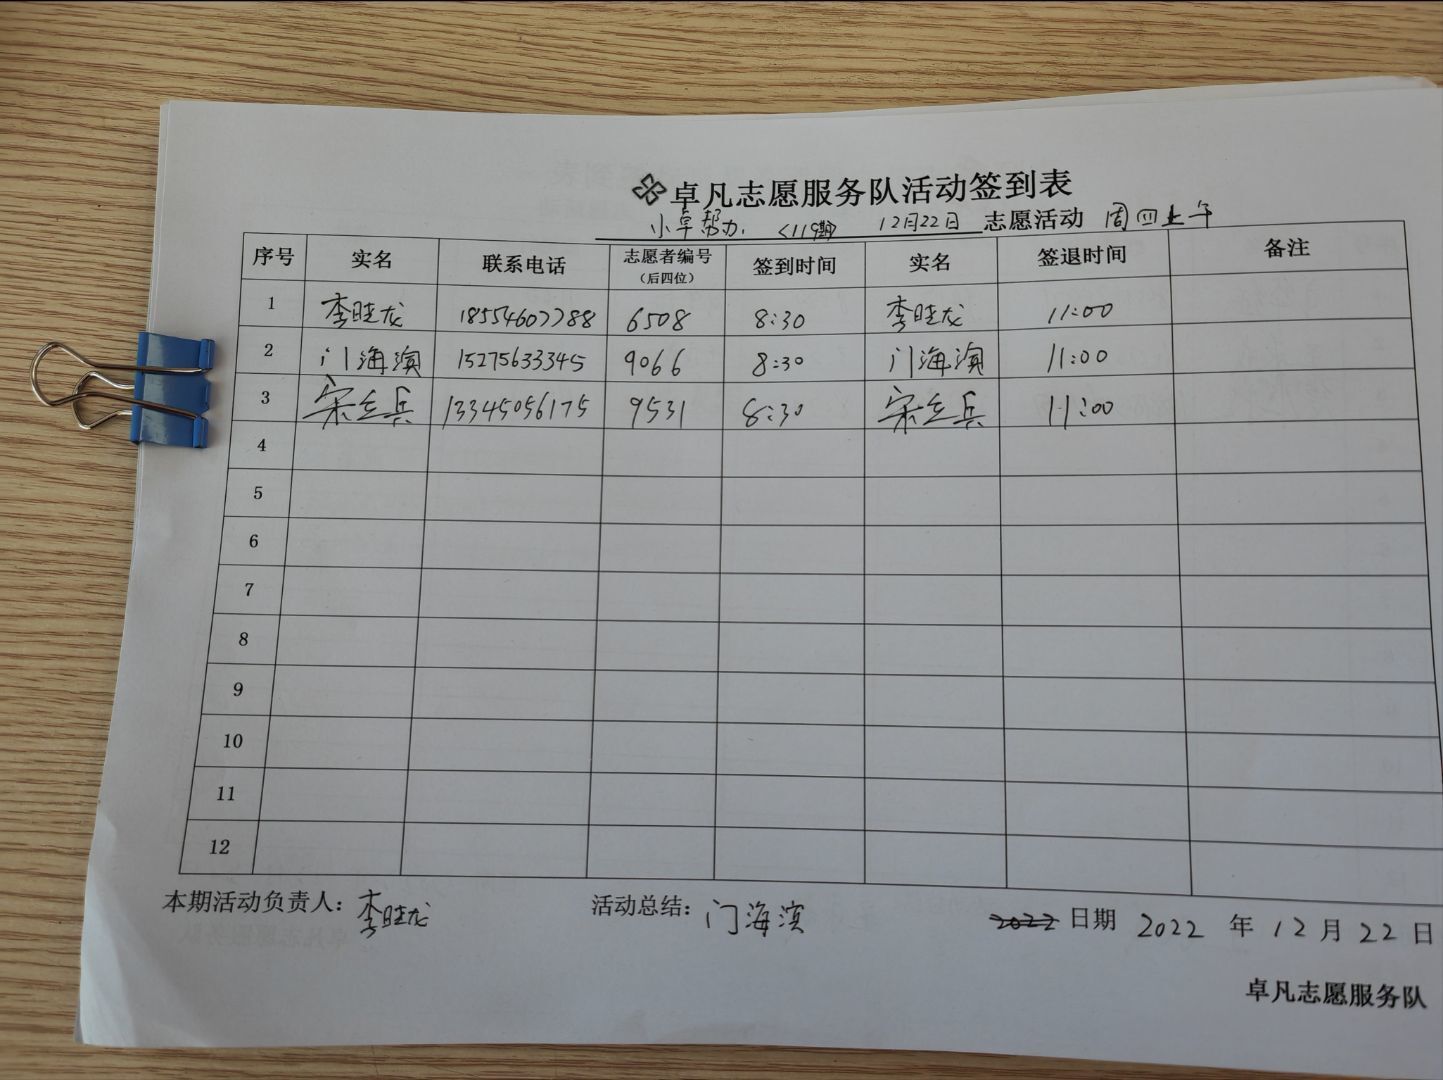 卓凡志愿服务队活动签到表
小卓帮办 <119期> 12月22日 志愿活动 周四上午
序号 实名 联系电话 志愿者编号（后四位） 签到时间 实名 签退时间 备注
1 李旺龙 18554607788 6508 8:30 李旺龙 11:00
2 门海滨 15275633345 9066 8:30 门海滨 11:00
3 宋立兵 13345056175 9531 8:30 宋立兵 11:00
4
5
6
7
8
9
10
11
12
本期活动负责人：李旺龙 活动总结：门海滨 2022 日期 2022 年 12 月 22 日
卓凡志愿服务队